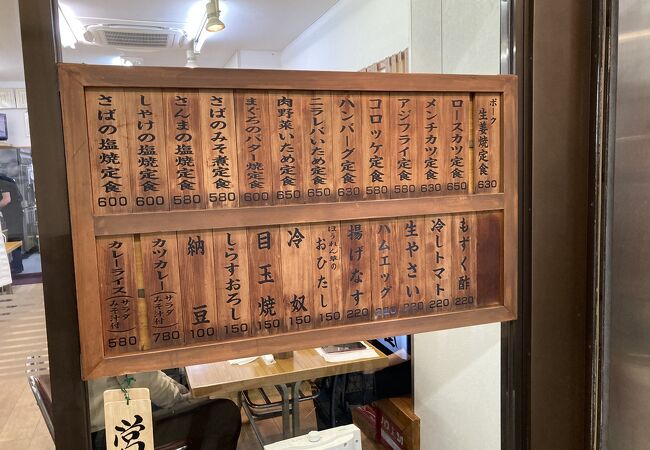 ポーク
生姜焼定食 630
ロースカツ定食 650
メンチカツ定食 630
アジフライ定食 580
コロッケ定食 580
ハンバーグ定食 630
ニラレバいため定食 650
肉野菜いため定食 650
まぐろのバター焼定食 580
さばのみそ煮定食 580
さんまの塩焼定食 580
しゃけの塩焼定食 600
さばの塩焼定食 600
もずく酢 220
冷しトマト 220
生やさい 220
ハムエッグ 220
揚げなす 220
ほうれん草の
おひたし 150
冷奴 150
目玉焼 150
しらすおろし 150
納豆 100
カツカレー(サラダ みそ汁付) 780
カレーライス(サラダ みそ汁付) 580
営